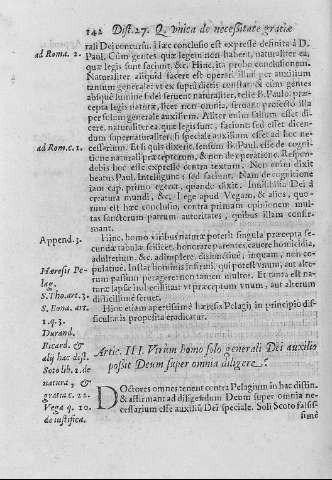 142 Dist. 27. Q. vnica de necessitate gratiæ
ad Roma. 2.
rali Dei concursu. Hæc conclusio est expresse definita à D.
Paul. Cùm gentes quæ legem non habent, naturaliter ea,
quæ legis sunt faciunt, &c. Hinc ita probo conclusionem.
Naturaliter aliquid facere est operari illud per auxilium
tantum generale: vt ex supradictis constat: & cùm gentes
absque lumine fidei seruent naturaliter, teste B. Paulo præ-
cepta legis naturæ, licet non omnia, seruant profecto illa
per solum generale auxilium. Aliter enim falsum esset di-
cere, naturaliter ea quæ legis sunt, faciunt: sed esset dicen-
dum supernaturaliter, si speciale auxilium esset ad hoc ne-
ad Rom. c. 1.
cessarium. Et si quis dixerit, sensum B. Pauli, esse de cogni-
tione naturali præceptorum, & non de operatione. Respon-
debis hoc esse expresse contra textum. Non enim dixit
beatus Paul. Intelligunt: sed faciunt. Nam de cognitione
iam cap. primo egerat, quando dixit. Inuisibilia Dei à
creatura mundi, &c. Lege apud Vegam, & alios, quo-
rum est hæc conclusio, contra primam opinionem mul-
tas sanctorum patrum autoritates, quibus illam confir-
mant.
Append. 3.
Hinc, homo viribus naturæ poterit singula præcepta se-
cundæ tabulæ scilicet, honorare parentes, cauere homicidia,
adulterium, &c. adimplere, disiunctiuè, inquam, non co-
pulatiuè. Instar hominis infirmi, qui potest vnum, aut alte-
rum passum peragere: non tamen multos. Et tanta est na-
turæ lapsæ imbecillitas: vt præceptum vnum, aut alterum
difficillimè seruet.
Hæresis Pe-
lag.
S. Tho. art. 3.
S. Bona. art.
1. q. 3.
Hinc etiam apertissimè hæresis Pelagij in principio dif-
ficultatis proposita eradicatur.
Durand.
Ricard. &
alij hac dist.
Soto lib. 1. de
natura, &
gratia c. 22.
Vega q. 10.
de iustifica.
Artic. III. Vtrùm homo solo generali Dei auxilio
possit Deum super omnia diligere?
Doctores omnes tenent contra Pelagium in hac distin.
& affirmant ad diligendum Deum super omnia ne-
cessarium esse auxiliũ Dei speciale. Soli Scoto falsis-
simè